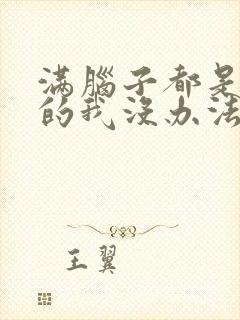 满腦子都是
的我沒办法
王翼